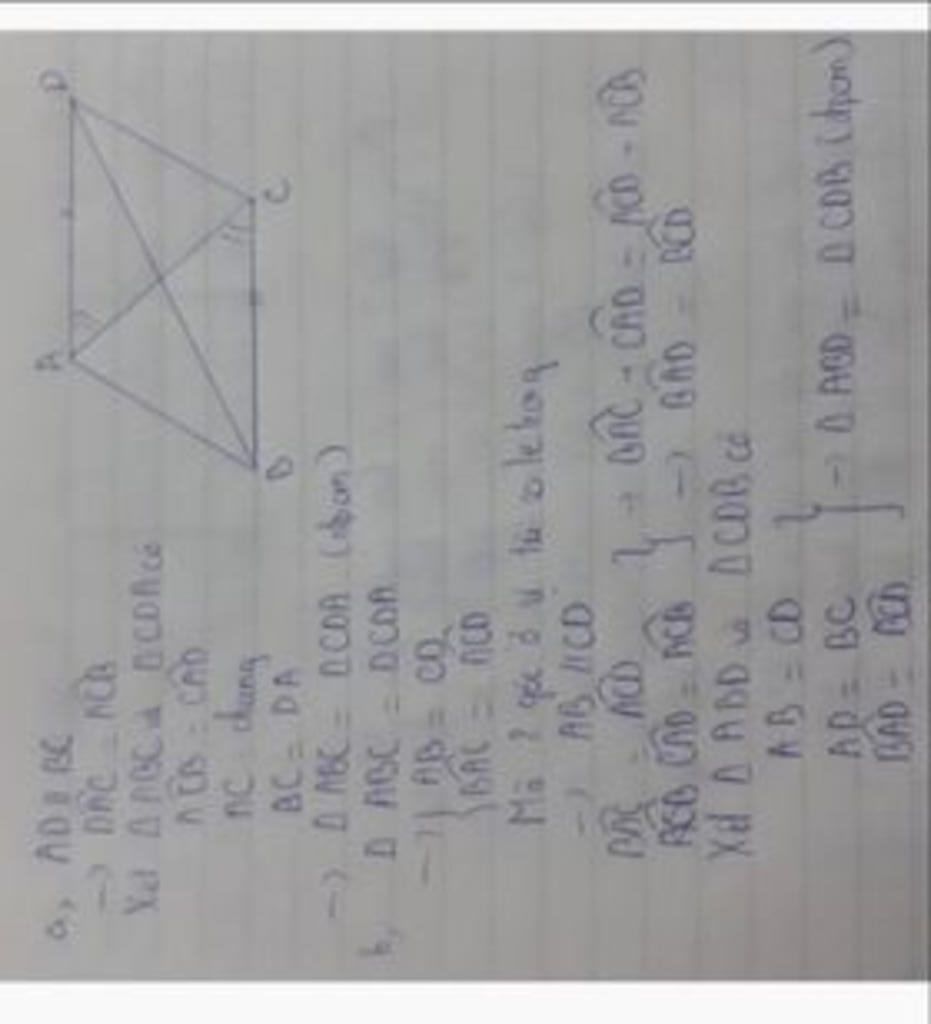 A
D
B
C
a, AD // BC
→ DAC = ACB
Xét Δ ABC và Δ CDA có
ACB = CAD
AC chung
BC = DA
→ Δ ABC = Δ CDA (đpcm)
b, Δ ABC = Δ CDA
→ { AB = CD
BAC = ACD
Mà 2 góc ở vị trí so le trong
→ AB // CD
BAC = ACD } → BAC + CAD = ACD + ACB
ACB CAD = ACB → BAD = BCD
Xét Δ ABD và Δ CDB có
AB = CD
AD = BC } → Δ ABD = Δ CDB (đpcm)
BAD = BCD